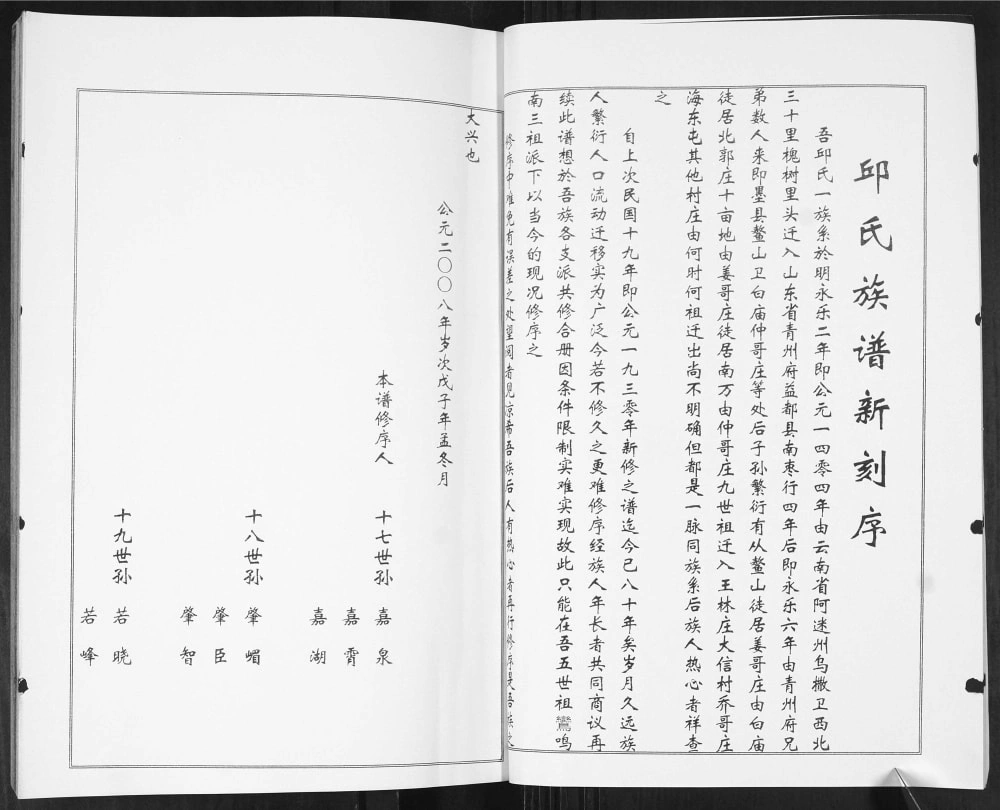 邱氏族谱新刻序
吾邱氏一族系於明永乐二年即公元一四零四年由云南省阿迷州乌撒卫西北
三十里槐树里头迁入山东省青州府益都县南枣行四年后即永乐六年由青州府兄
弟数人来即墨县鳌山卫白庙仲哥庄等处后子孙繁衍有从鳌山徒居姜哥庄由白庙
徒居北郭庄十亩地由姜哥庄徒居南万由仲哥庄九世祖迁入王林庄大信村乔哥庄
海东屯其他村庄由何时何祖迁出尚不明确但都是一脉同族系后族人热心者祥查
之
自上次民国十九年即公元一九三零年新修之谱迄今已八十年矣岁月久远族
人繁衍人口流动迁移实为广泛今若不修久之更难修序经族人年长者共同商议再
续此谱想於吾族各支派共修合册因条件限制实难实现故此只能在吾五世祖鸞鸣
南三祖派下以当今的现况修序之
修序中难免有误差之处望阅者见凉希吾族后人有热心者再行修序是吾族之
大兴也
公元二〇〇八年岁次戊子年孟冬月
本谱修序人
十七世孙 嘉泉
嘉霄
嘉湖
十八世孙 肇嵋
肇臣
肇智
十九世孙 若晓
若峰